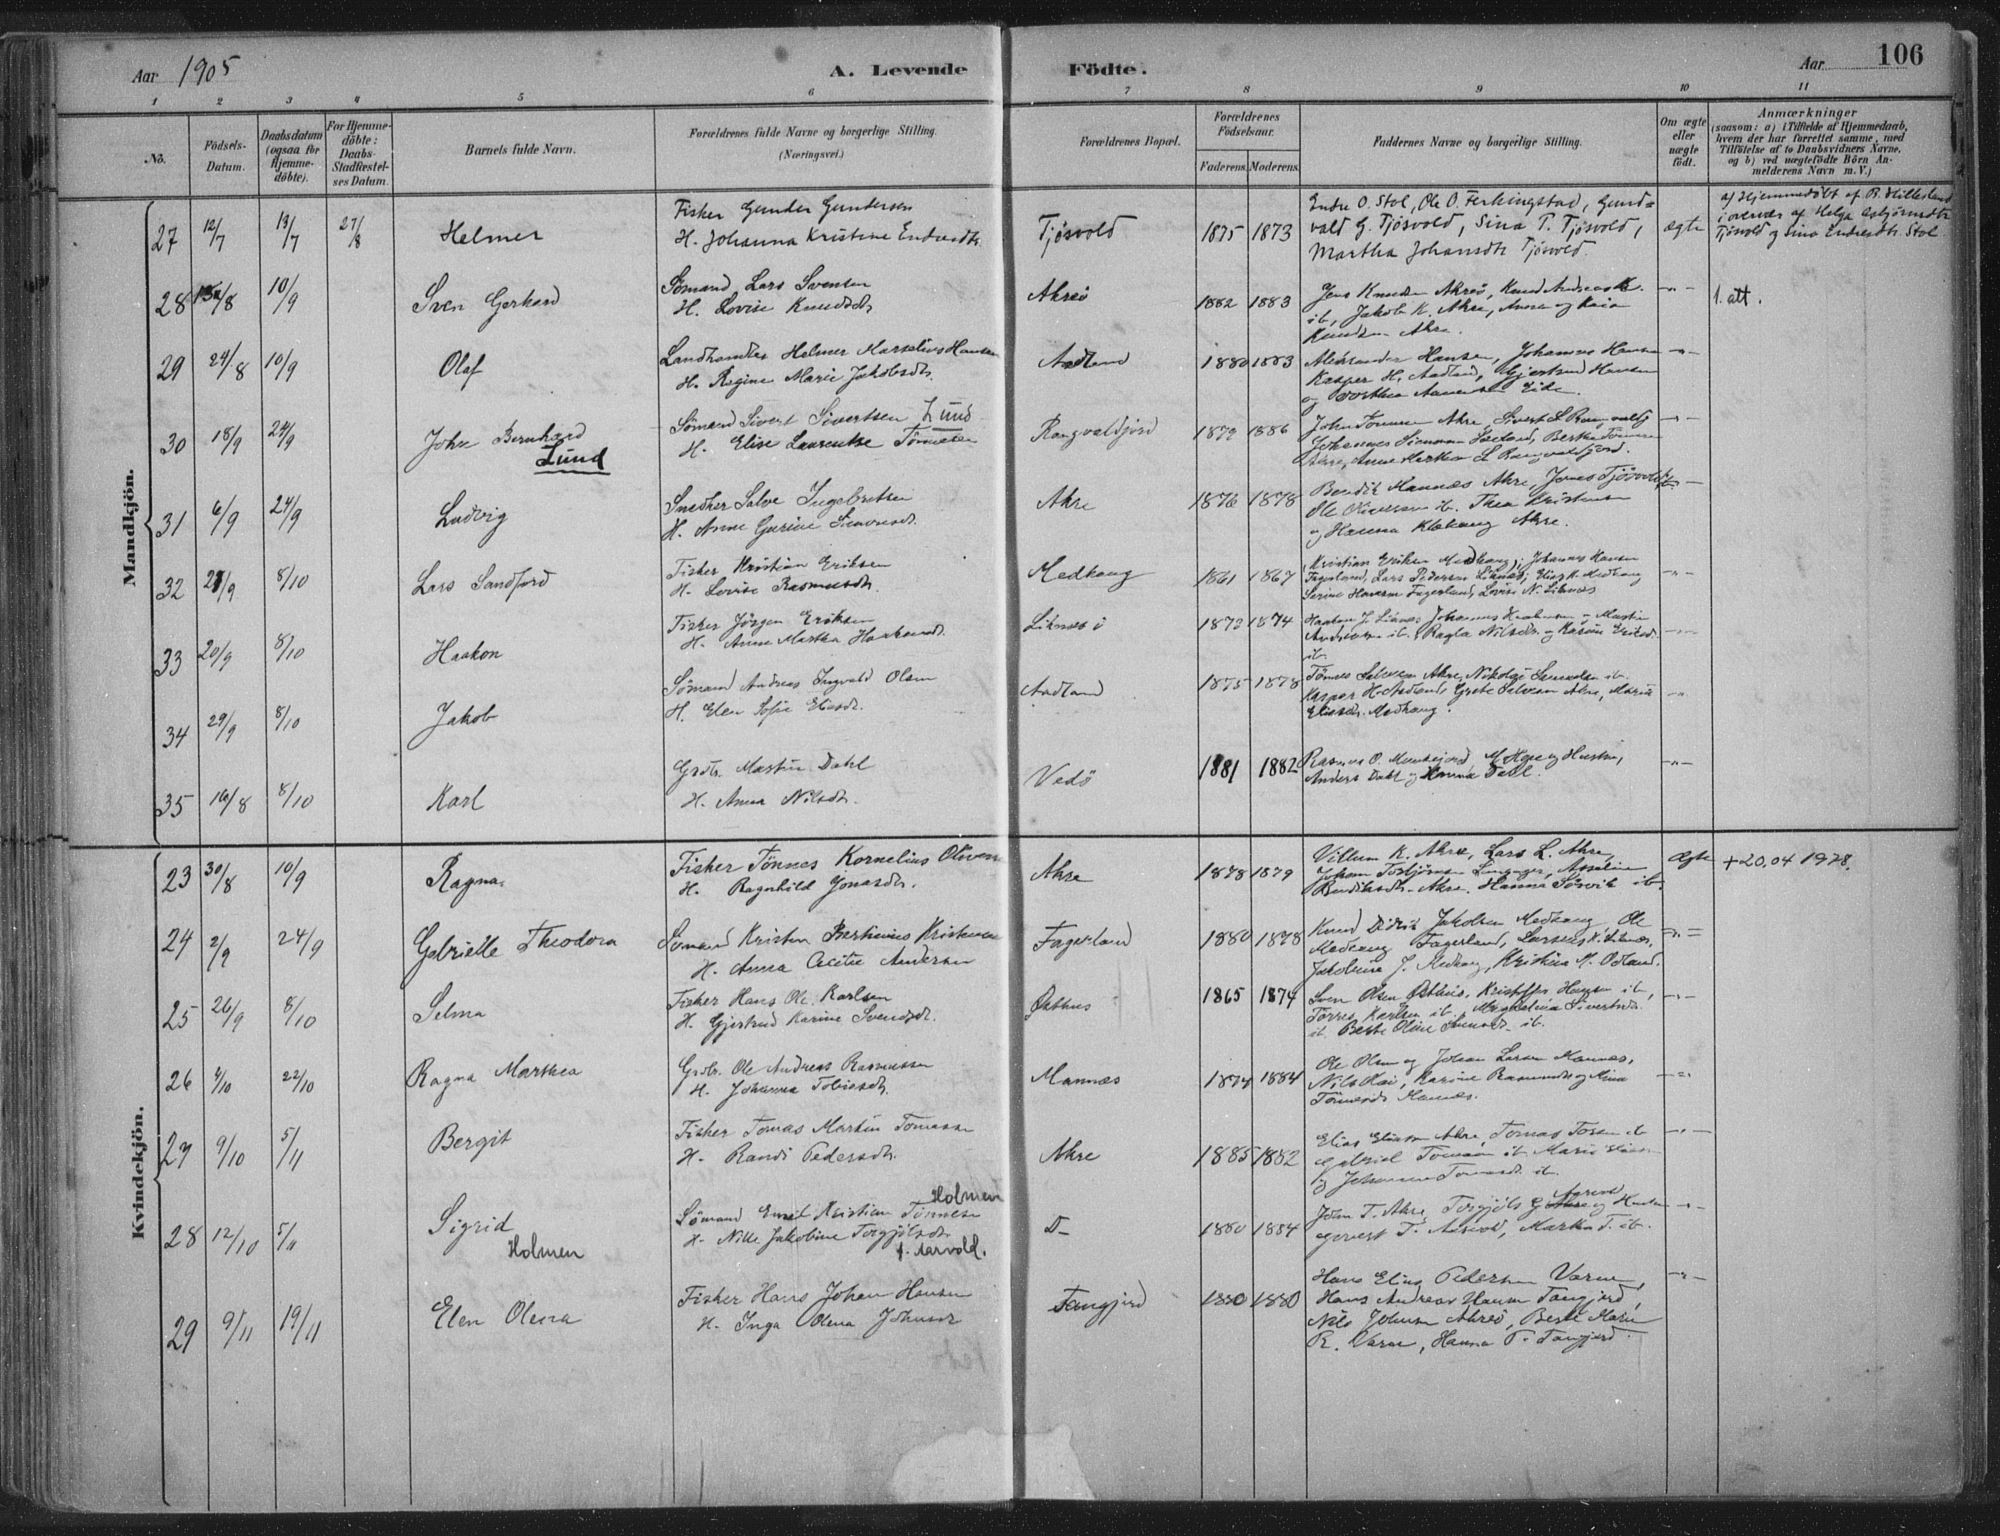 Aar 1905
A. Levende Födte.
Aar 106
1 2 3 4 5 6 7 8 9 10 11
No.
Födsels-Datum.
Daabsdatum (ogsaa for Hjemme-döbte).
For Hjemme-döbte: Daabs-Stadfæstel-ses Datum.
Barnets fulde Navn.
Forældrenes fulde Navne og borgerlige Stilling. (Næringsvei.)
Forældrenes Bopæl.
Forældrenes Födselsaar.
Faderens. Moderens.
Faddernes Navne og borgerlige Stilling.
Om ægte eller uægte födt.
Anmærkninger
(saasom: a) i Tilfælde af Hjemmedaab,
hvem der har forrettet samme, med
Tilföielse af to Daabsvidners Navne,
og b) ved uægtefödte Börn An-
melderens Navn m. V.)
Mandkjön.
27 12/7 13/7 27/8 Helmer
Fisker Gunder Gundersen
H. Johanna Kristine Endresdtr.
Tjøsvold 1875 1873
Endre O. Stol, Ole O. Ferkingstad, Gund-
vald G. Tjøsvold, Sina T. Tjøsvold,
Martha Johansdtr Tjøsvold.
ægte
af Hjemmedøbt af B. Hillesland
i overvær af Helga Asbjørnsdtr
Tjøsvold og Sina Endresdtr. Stol
28 /8 10/9 Sven Gerhard
Sømand Lars Svensen
H. Lovise Knudsdtr
Akreø 1882 1883
Jens Knudsen Akreø, Knud Andreas K.
ib, Jakob K. Akre, Anna og Kaia
Knudsen Akre.
1. att.
29 29/8 10/9 Olaf
Landhandler Helmer Marselius Hansen
H. Regine Marie Jakobsdtr.
Aadland 1880 1883
Aleksander Hansen, Johannes Hansen
Kasper H. Aadland, Gjertrud Hansen
og Dorthea Eide.
30 18/9 24/9 John Bernhard
Lund
Sømand Sivert Sivertsen Lund
H. Elise Laurentse Tønnesen
Rangvaldfjord 1879 1886
John Tønnesen Akre, Sivert S. Rangvaldfj
Johannes Simonsen Sæeland, Bertha Tønnesen
Akre, Anne Martha S. Rangvaldfjord.
31 6/9 24/9 Ludvig
Snedker Salve Ingebretsen
H. Anne Gurine Simonsdt.
Akre 1876 1878
Bendik Mannæs Akre, Jonas Tjøsvold
Ole ib. Thea Kristensen
og Hanna Akre.
32 /9 8/10 Lars Sandford
Fisker Kristian Eriksen
H. Lovise Rasmusdtr.
Medhaug 1861 1867
Kristian Eriksen Medhaug, Johannes Hansen
Fagerland, Lars Pedersen Liknæs, Medhaug
Serine Hansen Fagerland, Lovise N. Liknæs
33 20/9 8/10 Haakon
Fisker Jörgen Eriksen
H. Anne Martha Haakonsdt.
Liknæs 1873 1874
Haakon J. Liknæs Johannes og Martin
Andersen ib, Ragla Nilsdtr. og Karine Eriksd.
ib.
34 29/9 8/10 Jakob
Sømand Andreas Ingvald Olsen
H. Elen Sofie Eliasdtr.
Aadland 1875 1878
Tønnes Salvesen Akre, Nikolai ib.
Kasper H. Aadland, Grete Salvesen Akre, Marie
Eliasdr. Medhaug.
35 16/8 8/10 Karl
Grdbr. Martin Dahl
H. Anna Nilsdtr.
Vedö 1881 1882
Rasmus O. Munkejord, M. Hoe og Hustru,
Anders Dahl og Hanna Dahl.
Kvindekjön.
23 30/8 10/9 Ragna
Fisker Tönnes Kornelius Olivers
H. Ragnhild Jonasdtr.
Akre 1878 1879
Villum K. Akre, Lars L. Akre,
Johan Torbjörnsen
Bendiksdtr. Akre. Hanna Sørvik ib.
Ægte
+20.04 1978.
24 2/9 24/9 Gabrielle Theodora
Sømand Kristen Bertinius Kristensen
H. Anna Cecilie Andersen
Fagerland 1880 1878
Knud Didrik Jakobsen Medhaug Ole
Medhaug Fagerland, K. Liknæs,
Jakobine J. Medhaug, Kristine M. Odland.
25 26/9 8/10 Selma
Fisker Hans Ole Karlsen
H. Gjertrud Karine Svendsdt.
Østhus 1865 1874
Sven Olsen Østhus, Kristoffer Hansen ib,
Torres Karlsen ib, Magdelina Sivertsdt.
ib Berte Oline ib.
26 /10 22/10 Ragna Marthea
Grdbr. Ole Andreas Rasmussen
H. Johanna Tobiasdt.
Mannæs 1874 1884
Ole Olsen og Johan Larsen Mannæs,
Nils Kai, Karine Rasmusdtr og Mina
Tönnesdt. Mannæs.
27 9/10 5/11 Bergit
Fisker Tomas Martin Tomassen
H. Randi Pedersdt.
Akre 1885 1882
Elias Eliassen Akre, Tomas ib
Gabriel Tomassen ib Marie
og Johannes Tomasdt ib.
28 12/10 5/11 Sigrid
Holmen
Holmen
Sømand Emil Kristian Tønnesen
H. Nille Jakobine Torgjölsdt
f. Aarvold.
D- 1880 1884
Aarvold
John T. Akre, Torgjöls G. og Hustru
Govert T. Aarvold, Martha T. ib.
29 9/11 19/11 Elen Olena
Fisker Hans Johan Hansen
H. Inga Olena Johnsdt
Tangjerd 1880 1880
Hans Elias Pedersen Varne,
Hans Andreas Hansen Tangjerd,
Nils Johnsen Akreø, Berte Marie
R. Varne, Hanna T. Tangjerd.